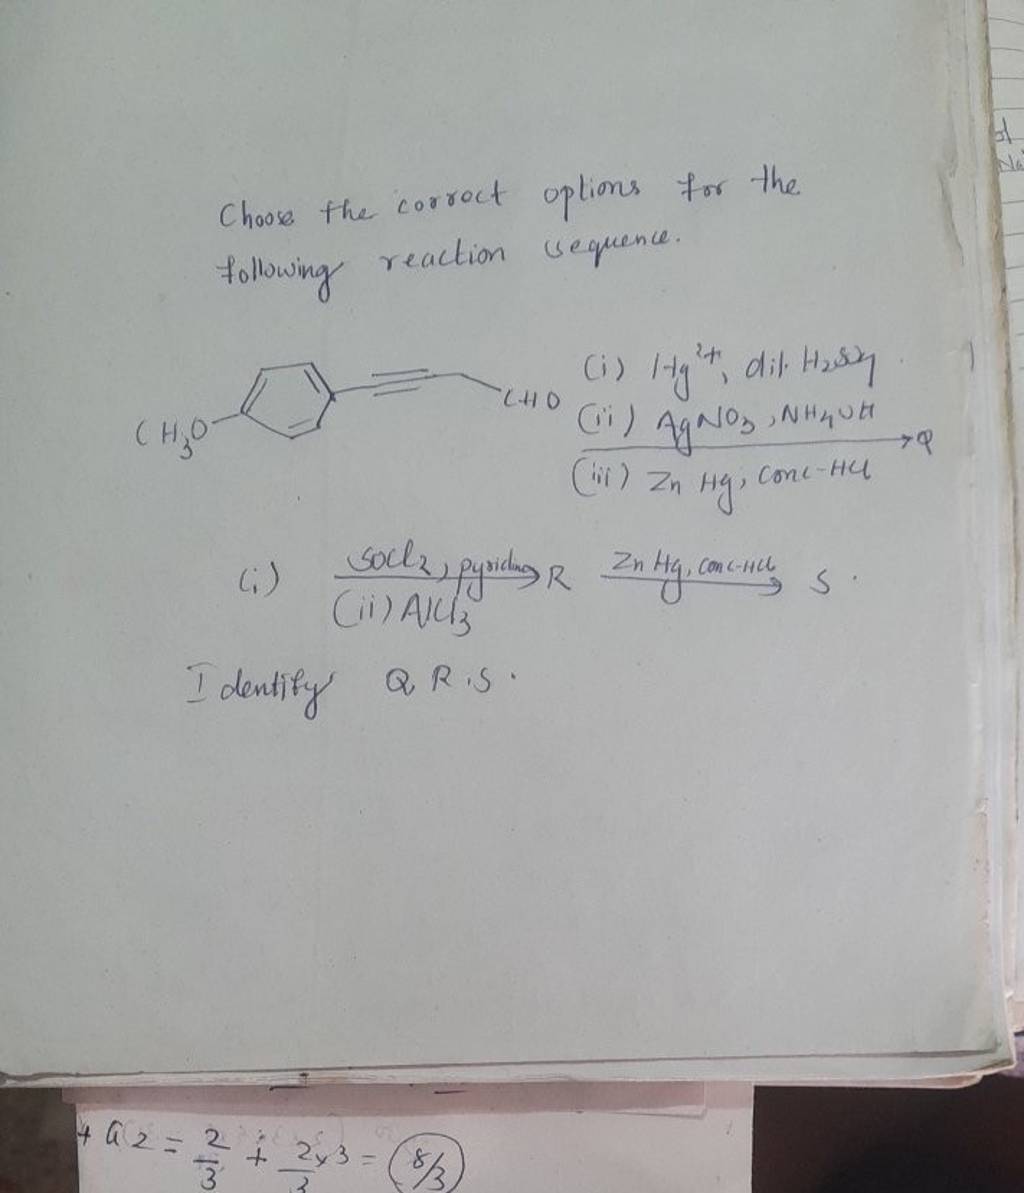 Choose the correct options for the
following reaction sequence.
(i) Hg²⁺, dil. H₂SO₄
CH₃O CHO (ii) AgNO₃, NH₄OH → Q
(iii) Zn Hg, Conc-HCl
(i) SOCl₂, pyridine → R Zn Hg, Conc-HCl → S.
(ii) AlCl₃
Identify Q, R, S.
+ a₂ = 2/3 + 2x3/3 = 8/3